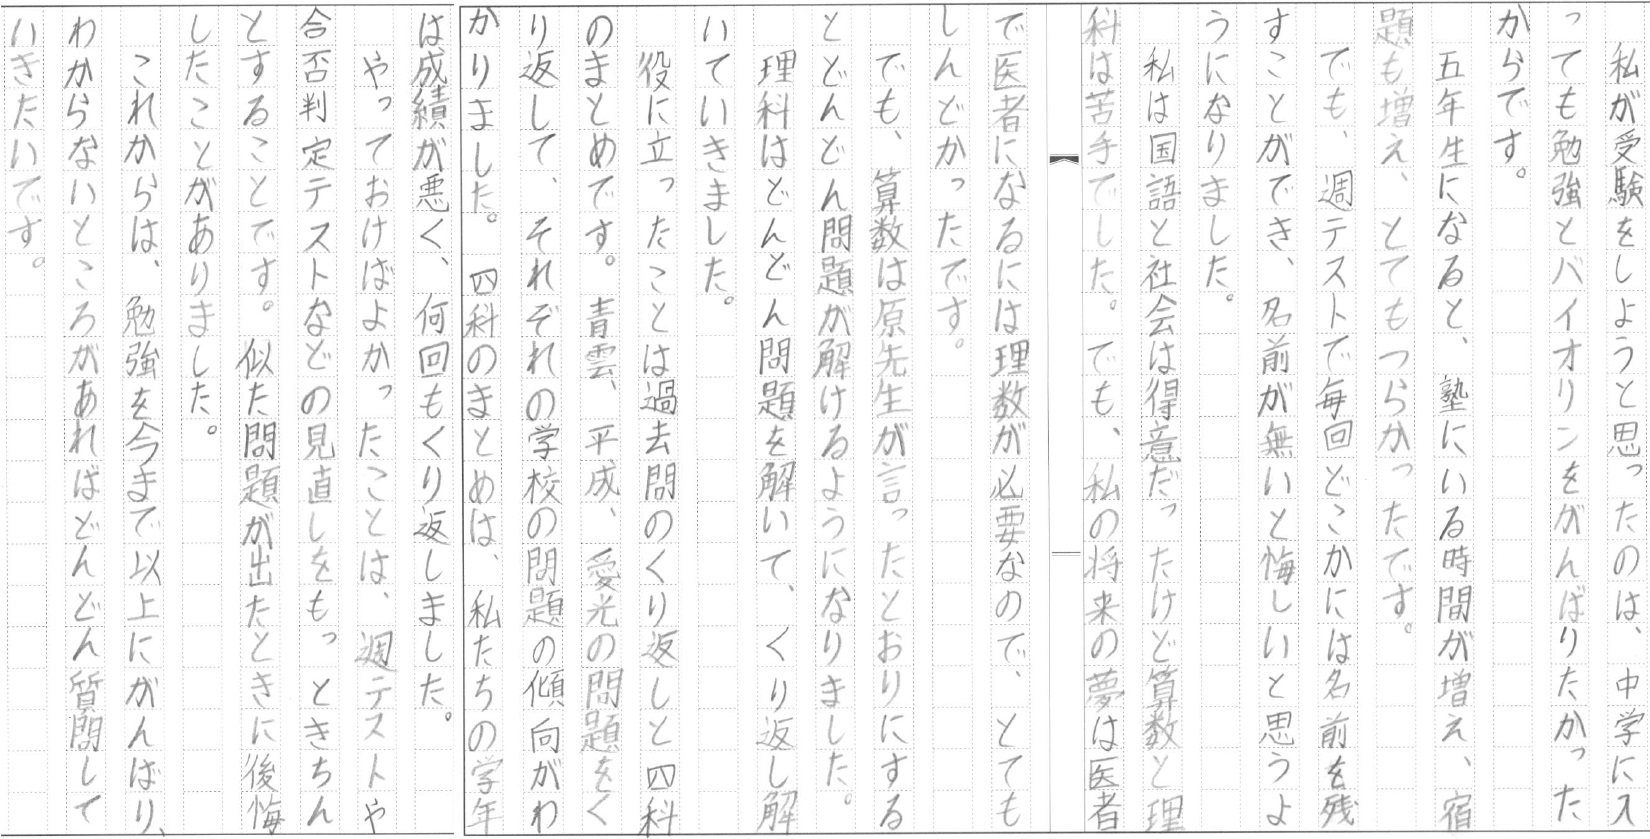 私が受験をしようと思ったのは、中学に入
っても勉強とバイオリンをがんばりたかった
からです。
五年生になると、塾にいる時間が増え、宿
題も増え、とてもつらかったです。
でも、週テストで毎回どこかには名前を残
すことができ、名前が無いと悔しいと思うよ
うになりました。
私は国語と社会は得意だったけど算数と理
科は苦手でした。でも、私の将来の夢は医者
で医者になるには理数が必要なので、とても
しんどかったです。
でも、算数は原先生が言ったとおりにする
とどんどん問題が解けるようになりました。
理科はどんどん問題を解いて、くり返し解
いていきました。
役に立ったことは過去問のくり返しと四科
のまとめです。青雲、平成、愛光の問題をく
り返して、それぞれの学校の問題の傾向がわ
かりました。四科のまとめは、私たちの学年
は成績が悪く、何回もくり返しました。
やっておけばよかったことは、週テストや
合否判定テストなどの見直しをもっときちん
とすることです。似た問題が出たときに後悔
したことがありました。
これからは、勉強を今まで以上にがんばり、
わからないところがあればどんどん質問して
いきたいです。